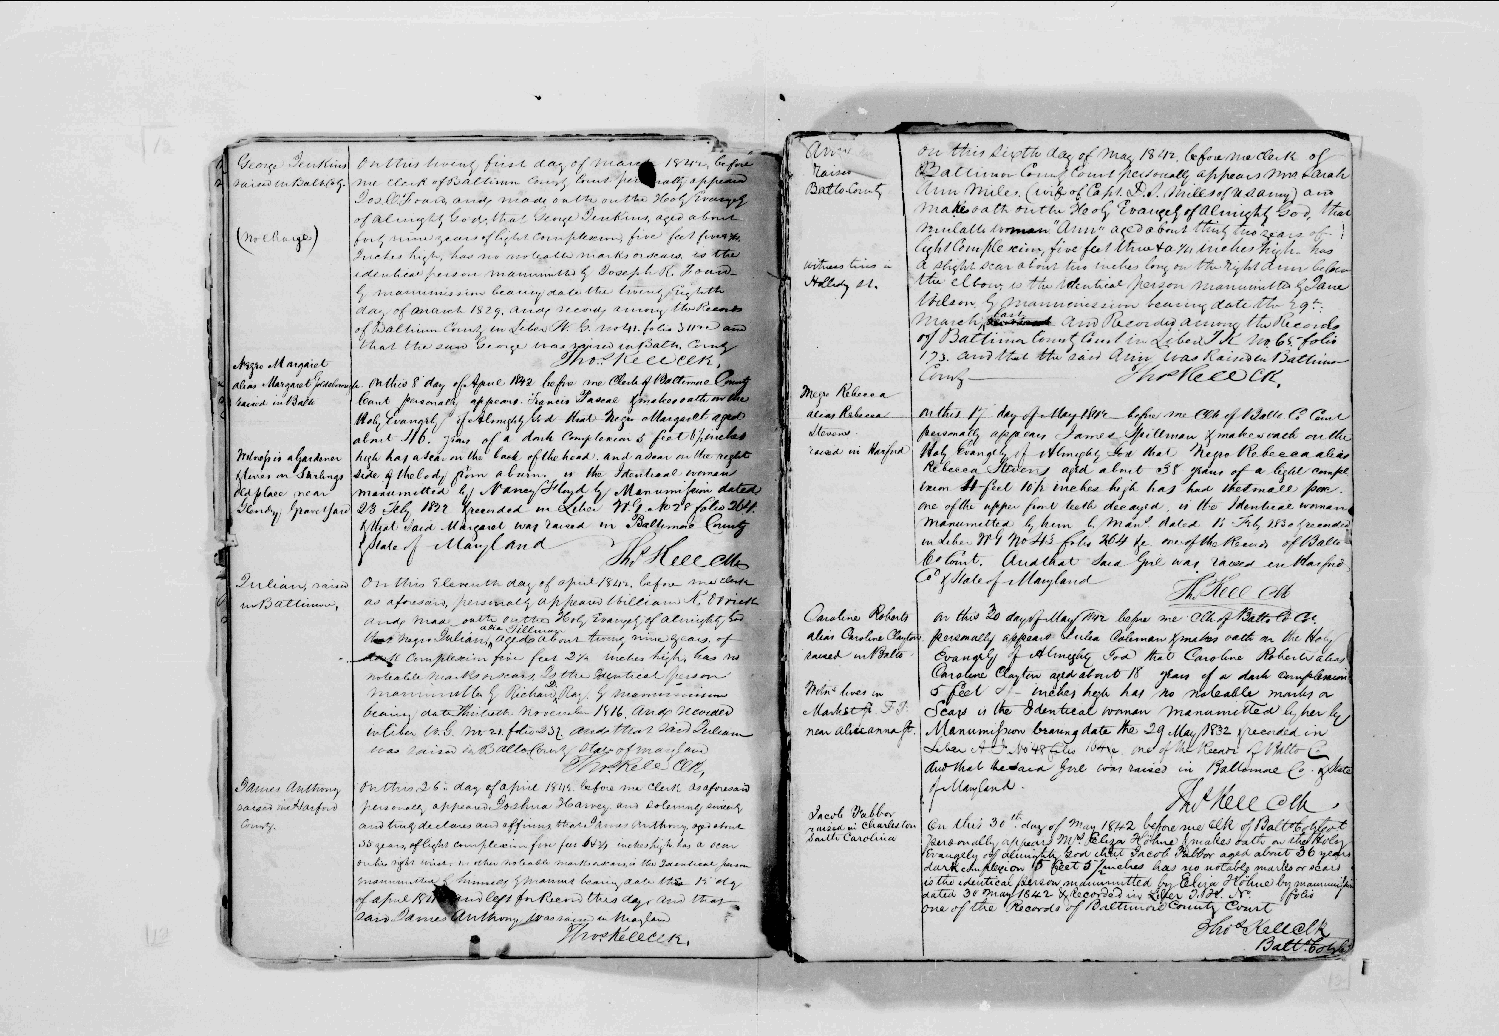 George Jenkins
raised in Balto Cy.
(No Charge)
On this twenty first day of March 1842, before
me Clerk of Baltimore County Court personally appeared
and made oath on the Holy Evangely
of Almighty God, that George Jenkins, aged about
forty nine years of light Complexion, five feet five
inches high, has no noteable marks or scars, is the
identical person manumitted by Joseph R. Foard
by manumission bearing date the twenty Eighth
day of March 1829, and record, among the Records
of Baltimore County in Liber W. G. no 41. folio and
that the said George was raised in Balto. County
Thos Kell Clk.
Negro Margaret
alias Margaret
raised in Balto
Witness is a Gardener
& lives on
old place near
Grave Yard
On this 8 day of April 1842 before me Clerk of Baltimore County
Court personally appears Francis Pascal & makes oath on the
Holy Evangely of Almighty God that Negro Margaret aged
about 46. years of a dark Complexion 5 feet inches
high has a scar on the back of the head. and a scar on the right
side of the body from a burn. is the Identical woman
manumitted by Nancy Floyd by Manumission dated
23 Feby & recorded in Liber W G No folio 264
& that said Margaret was raised in Baltimore County
& State of Maryland
Thos Kell Clk
Julian, raised
in Baltimore,
On this Eleventh day of april 1842, before me clerk
as aforesaid, personally appeared William
and made oath on the Holy Evangely of Almighty God
that Negro Julian, alias Tillman aged about twenty nine years, of
dark Complexion five feet 2¼ inches high, has no
noteable marks or scars, is the Identical person
manumitted by Richard Ray, by manumission
bearing date Thirtieth November 1816, and recorded
in Liber W. G. no. 21. folio and that said Julian
was raised in Balto County State of Maryland
Thos Kell Clk,
James Anthony
raised in Harford
County.
On this 26th day of april 1842, before me clerk as aforesaid
personally appeared Joshua Harvey and solemnly sincerely
and truly declares and affirms that James Anthony, aged about
35 years, of light complexion five feet inches high has a scar
on the right wrist, no other notable marks or scars, is the Identical person
manumitted by himself by manumt bearing date the day
of april 1842 and left for Record this day, and that
said James Anthony was raised in Maryland
Thos Kell Clk.
Ann
raised
Balto County
witness lives in
Holliday St.
On this sixth day of May 1842, before me Clerk of
Baltimore County Court personally appears Mrs Sarah
Ann Miles, (wife of Capt. D. S. Miles of U S Army) and
makes oath on the Holy Evangely of Almighty God, that
mulatto woman "Ann" aged about thirty two years of
light Complexion, five feet three & a ¼ inches high has
a slight scar about two inches long on the right arm below
the elbow, is the identical person manumitted by Jane
Wilson by manumission bearing date the 29th
March last and Recorded among the Records
of Baltimore County Court in Liber T K no. 65. folio
173. and that the said Ann, was Raised in Baltimore
County
Thos Kell Clk.
Negro Rebecca
alias Rebecca
Stevens.
raised in Harford
On this 17 day of May 1842 before me Clk of Balto Co Court
personally appears James Spillman & makes oath on the
Holy Evangely of Almighty God that Negro Rebecca alias
Rebecca Stevens aged about 38 years of a light compl
exion 4 feet 10½ inches high has had the small pox.
one of the upper front teeth decayed, is the Identical woman
manumitted by him by Manu dated Feby 1830 & recorded
in Liber W G No 43 folio 264 &c one of the Records of Balto
Co Court. And that said Girl was raised in Harford
Co & State of Maryland
Thos Kell Clk
Caroline Roberts
alias Caroline Clayton
raised in Balto
Witns lives in
Market St F. P.
near Aliceanna St.
On this 20 day of May 1842 before me Clk of Balto Co Ct,
personally appears Julia Coleman & makes oath on the Holy
Evangely of Almighty God that Caroline Roberts alias
Caroline Clayton aged about 18 years of a dark complexion
5 feet inches high has no noteable marks or
Scars is the Identical woman manumitted by her by
Manumission bearing date the 29 May 1832 & recorded in
Liber A I. No 48 folio one of the Records of Balto Co
And that the said Girl was raised in Baltimore Co. & State
of Maryland.
Thos Kell Clk
Jacob Tabbor
raised in Charleston
South Carolina
On this 30th day of May 1842 before me Clk of Balto Co Court
personally appears Mrs Eliza Hohne & makes oath on the Holy
Evangely of Almighty God that Jacob Tabbor aged about 36 years
dark complexion 5 feet 5½ inches has no notable marks or scars
is the identical person manumitted by Eliza Hohne by manumission
dated 30 May 1842 & Recorded in Liber T. K. No. folio
one of the Records of Baltimore County Court
Thos Kell Clk
Balto Co